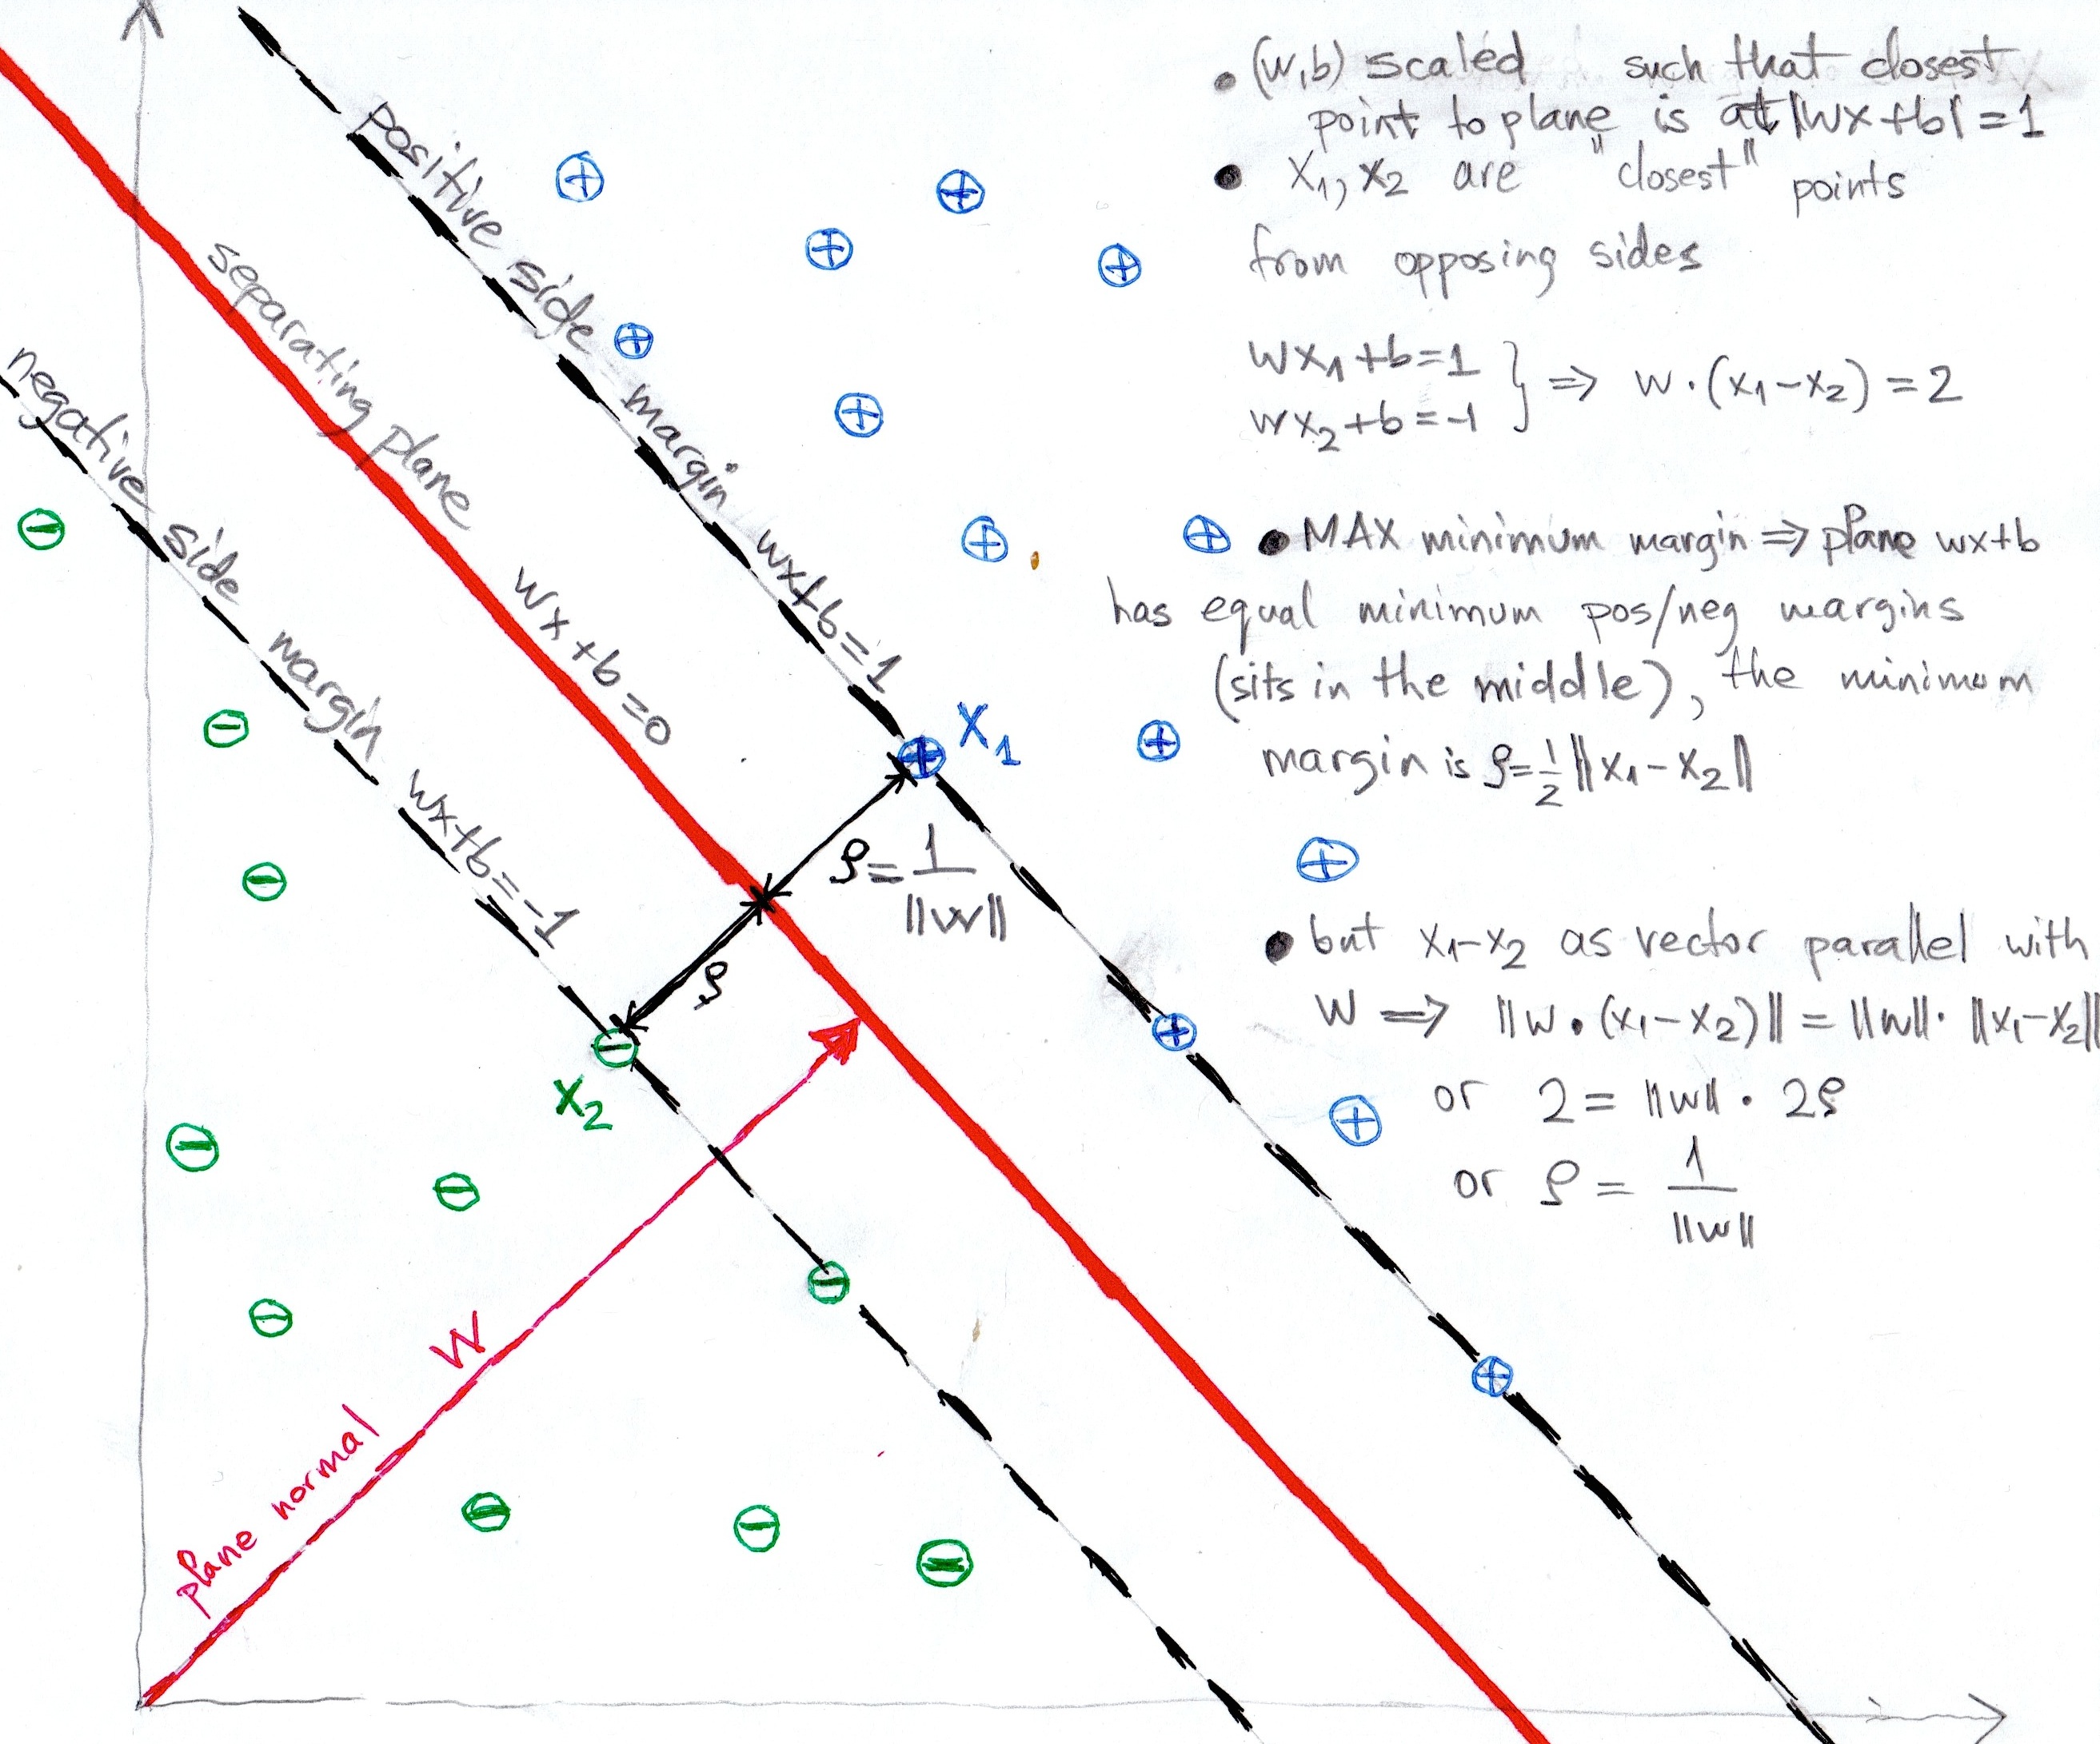 • (w,b) scaled such that closest
point to plane is at |wx+b| = 1
• x₁, x₂ are "closest" points
from opposing sides
wx₁+b=1
wx₂+b=-1 } ⇒ w·(x₁-x₂) = 2
• MAX minimum margin ⇒ plane wx+b
has equal minimum pos/neg margins
(sits in the middle), the minimum
margin is ρ=½||x₁-x₂||
• but x₁-x₂ as vector parallel with
w ⇒ ||w·(x₁-x₂)|| = ||w||·||x₁-x₂||
or 2 = ||w||·2ρ
or ρ = 1/||w||
positive side margin wx+b=1
separating plane wx+b=0
negative side margin wx+b=-1
X₁
ρ=1/||w||
ρ
X₂
W
plane normal